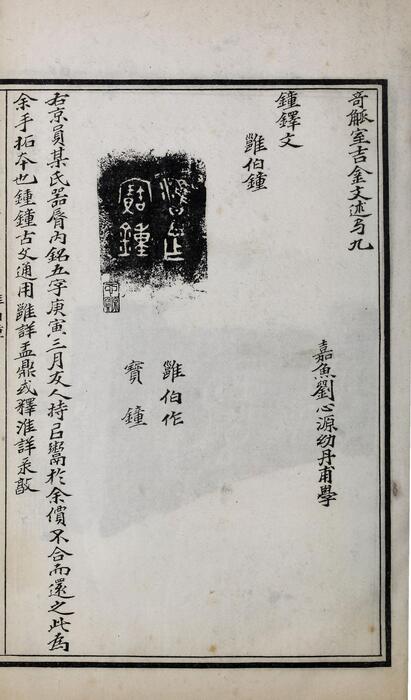 奇觚室吉金文述卷九
嘉魚劉心源幼丹甫學
鐘鐸文
雝伯鐘
雝伯作
寶鐘
右京員某氏器脣內銘五字庚寅三月友人持㠯鬻於余價不合而還之此為
余手拓本也鍾鐘古文通用雝詳盂鼎或釋淮詳彔𣪘